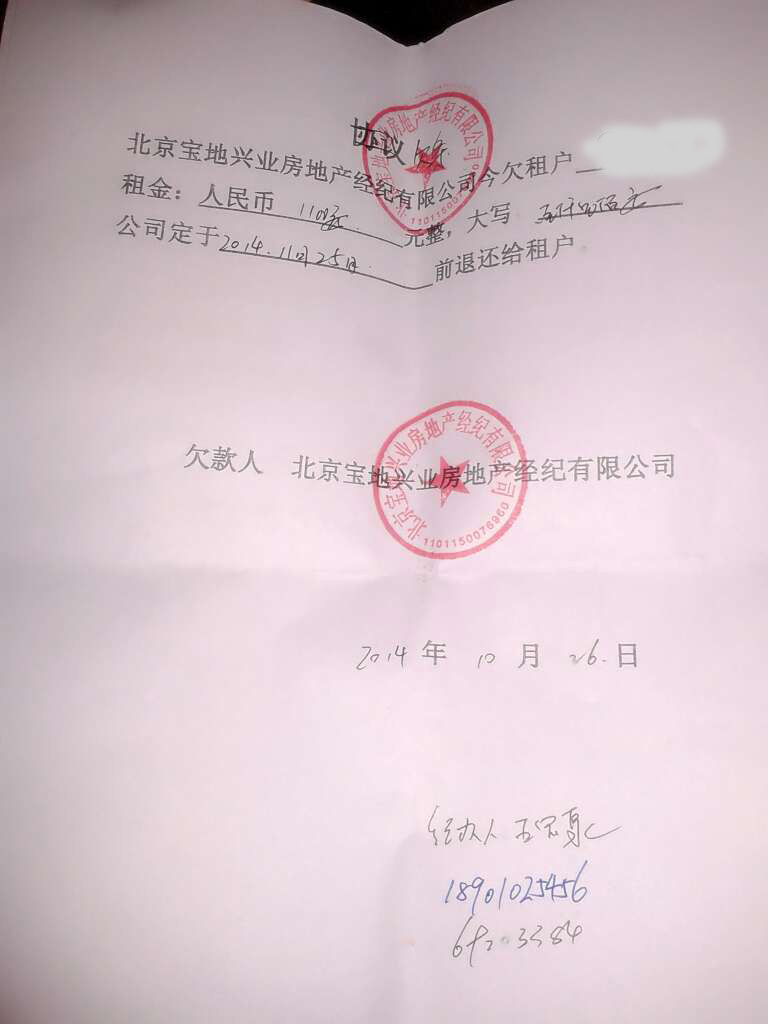 协议
北京宝地兴业房地产经纪有限公司今欠租户
租金：人民币 元整，大写
公司定于2014.11月25日 前退还给租户
北京宝地兴业房地产经纪有限公司
欠款人 北京宝地兴业房地产经纪有限公司
北京宝地兴业房地产经纪有限公司
1101150076960
2014年10月26日
经办人
18901025456